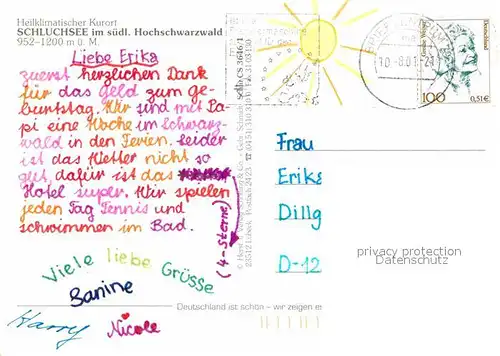 Heilklimatischer Kurort
SCHLUCHSEE im südl. Hochschwarzwald
952-1200 m ü. M.
Liebe Erika
zuerst herzlichen Dank
für das Geld zum ge-
burtstag. Wir sind mit Pa-
pi eine Woche im Schwarz-
wald in den Ferien. Leider
ist das Wetter nicht so
gut, dafür ist das
Hotel super. Wir spielen
jeden Tag Tennis und
schwimmen im Bad.
(4-Sterne)
Viele liebe Grüsse
Banine
Harry
Nicole
Deutschland ist schön – wir zeigen es
schle CS 3646/1
Deutschland
100
0,51€
10.-8.01-21
Frau
Erika
Dillg
D-12
privacy protection
Datenschutz